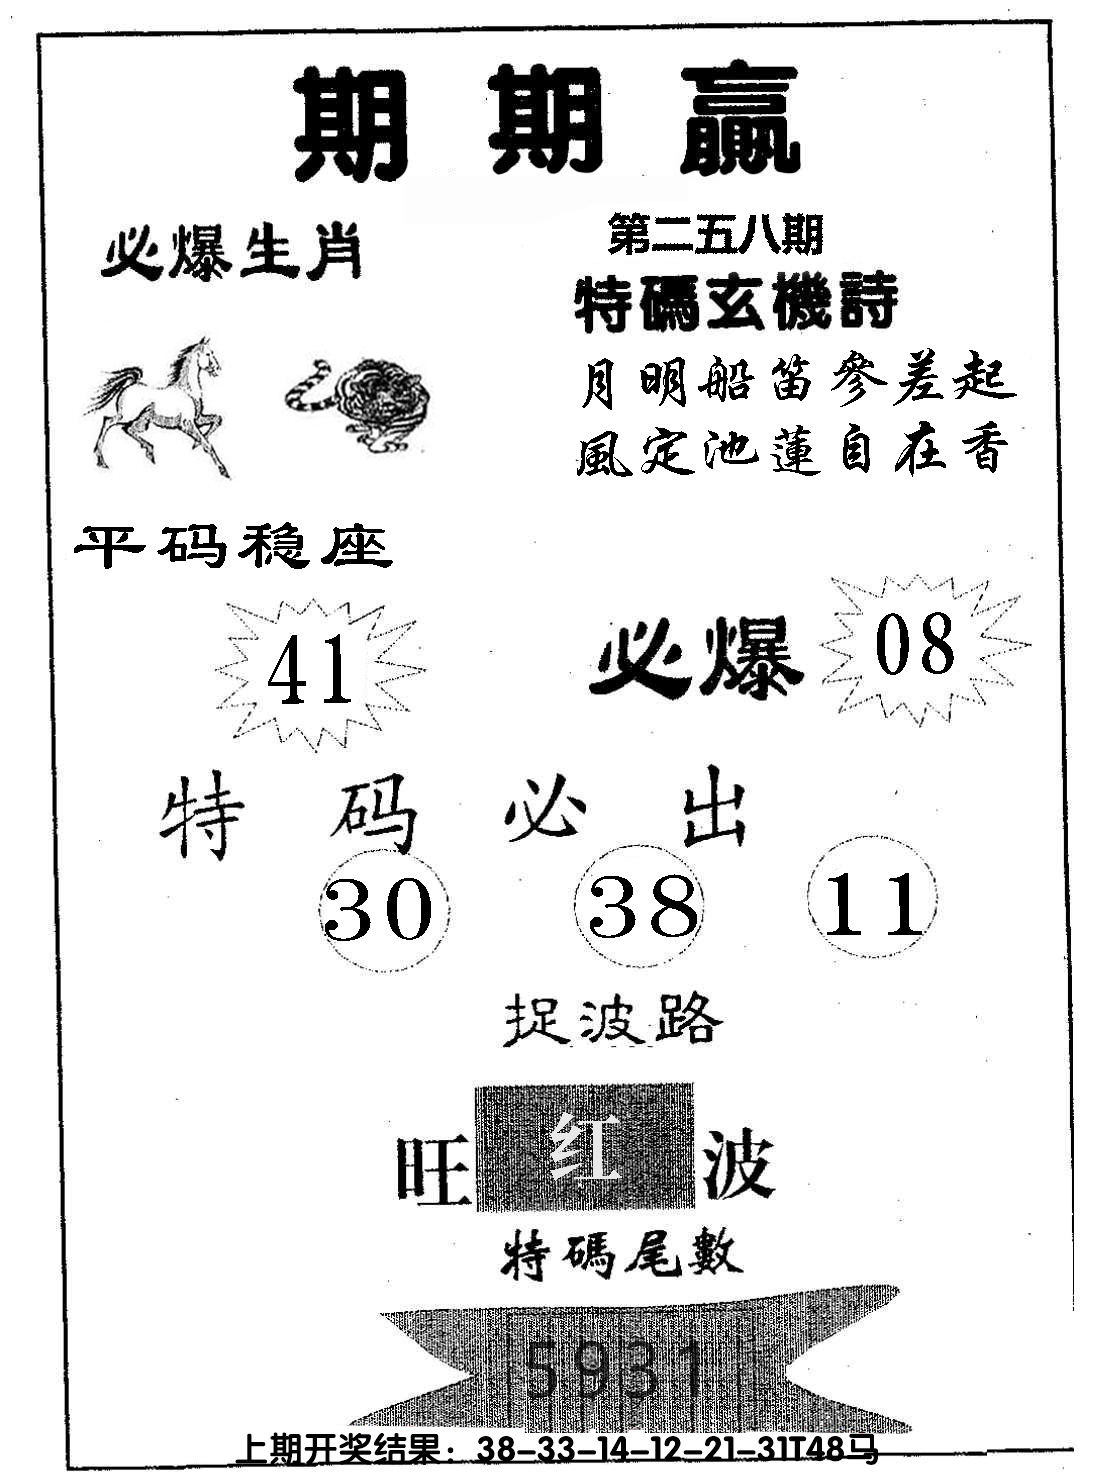 期期贏
必爆生肖
第二五八期
特碼玄機詩
月明船笛參差起
風定池蓮自在香
平码稳座
41
必爆 08
特码必出
30 38 11
捉波路
旺 红 波
特碼尾數
5931
上期开奖结果：38-33-14-12-21-31T48马